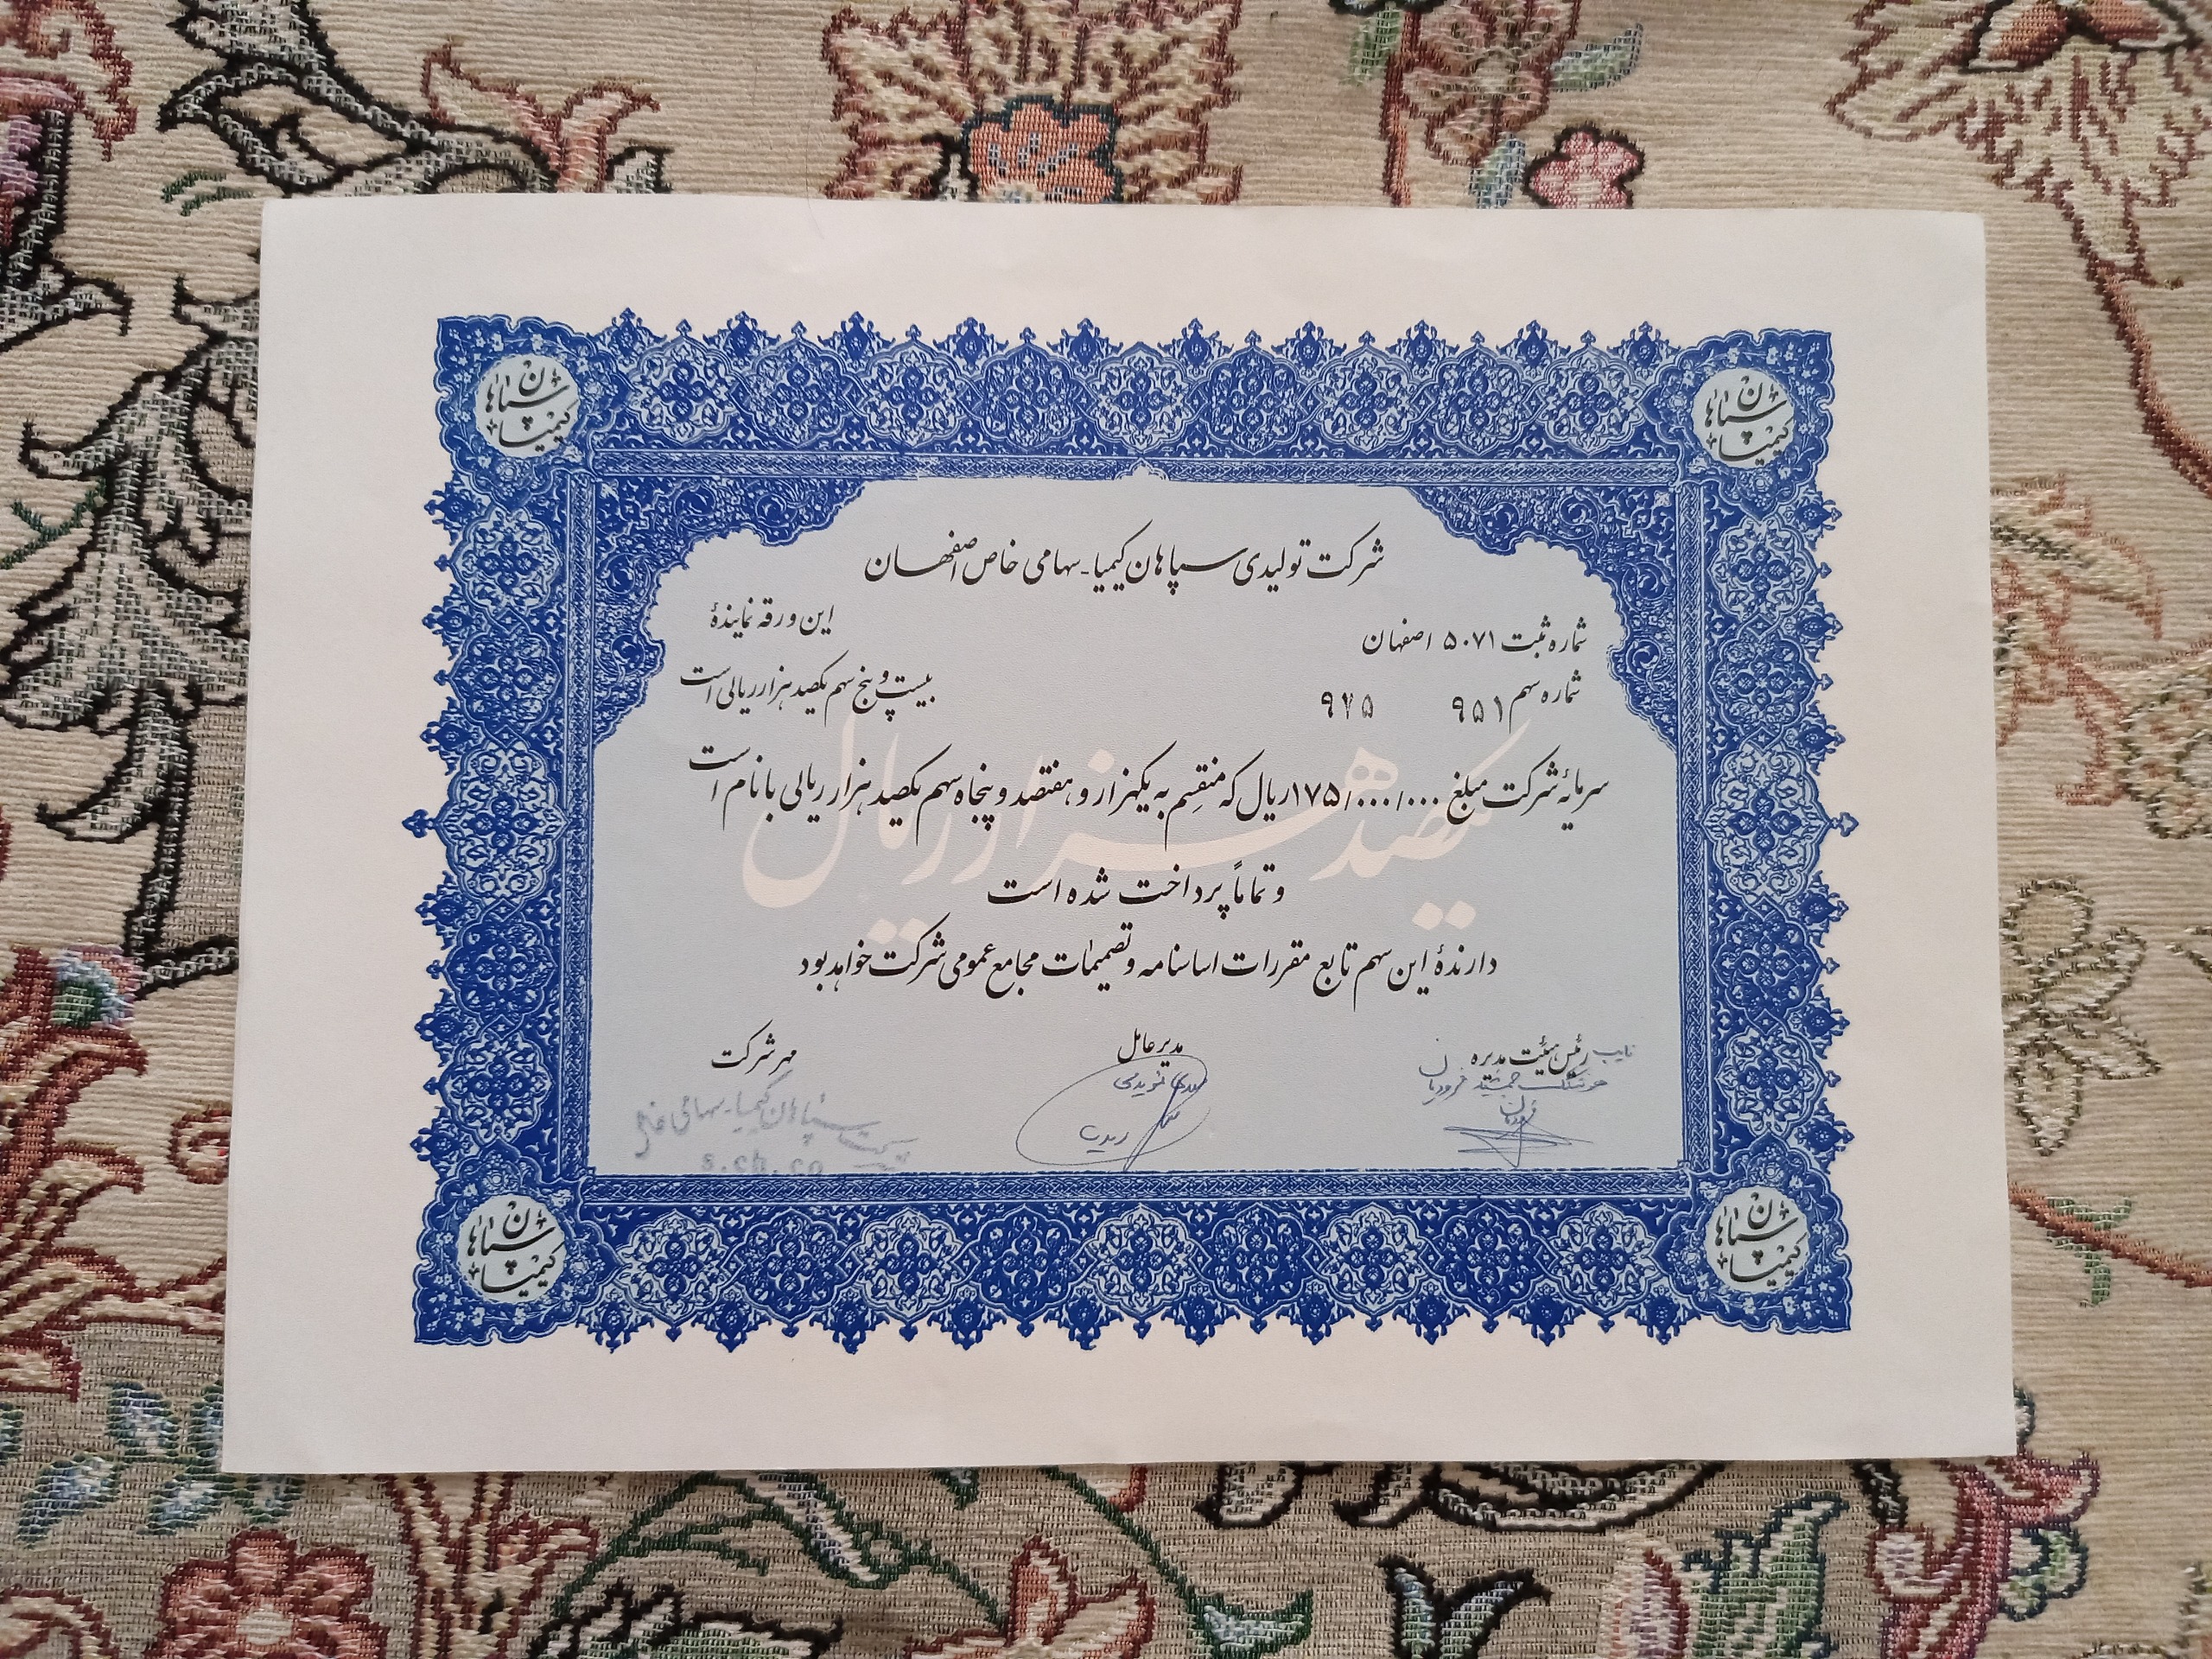 سپاهان
کیمیا
سپاهان
کیمیا
شرکت تولیدی سپاهان کیمیا - سهامی خاص اصفهان
شماره ثبت ۵۰۷۱ اصفهان
این ورقه نمایندهٔ
شماره سهم ۹۵۱ ۹۷۵
بیست و پنج سهم یکصد هزار ریالی است
یکصد هزار ریال
سرمایهٔ شرکت مبلغ ۱۷۵/۰۰۰/۰۰۰ ریال که منقسم به یکهزار و هفتصد و پنجاه سهم یکصد هزار ریالی با نام است
و تماماً پرداخت شده است
دارندهٔ این سهم تابع مقررات اساسنامه و تصمیمات مجامع عمومی شرکت خواهد بود
نایب رئیس هیئت مدیره
مدیر عامل
مهر شرکت
هوشنگ جمشید فرودیان
شرکت سپاهان کیمیا - سهامی خاص
سپاهان
کیمیا
سپاهان
کیمیا